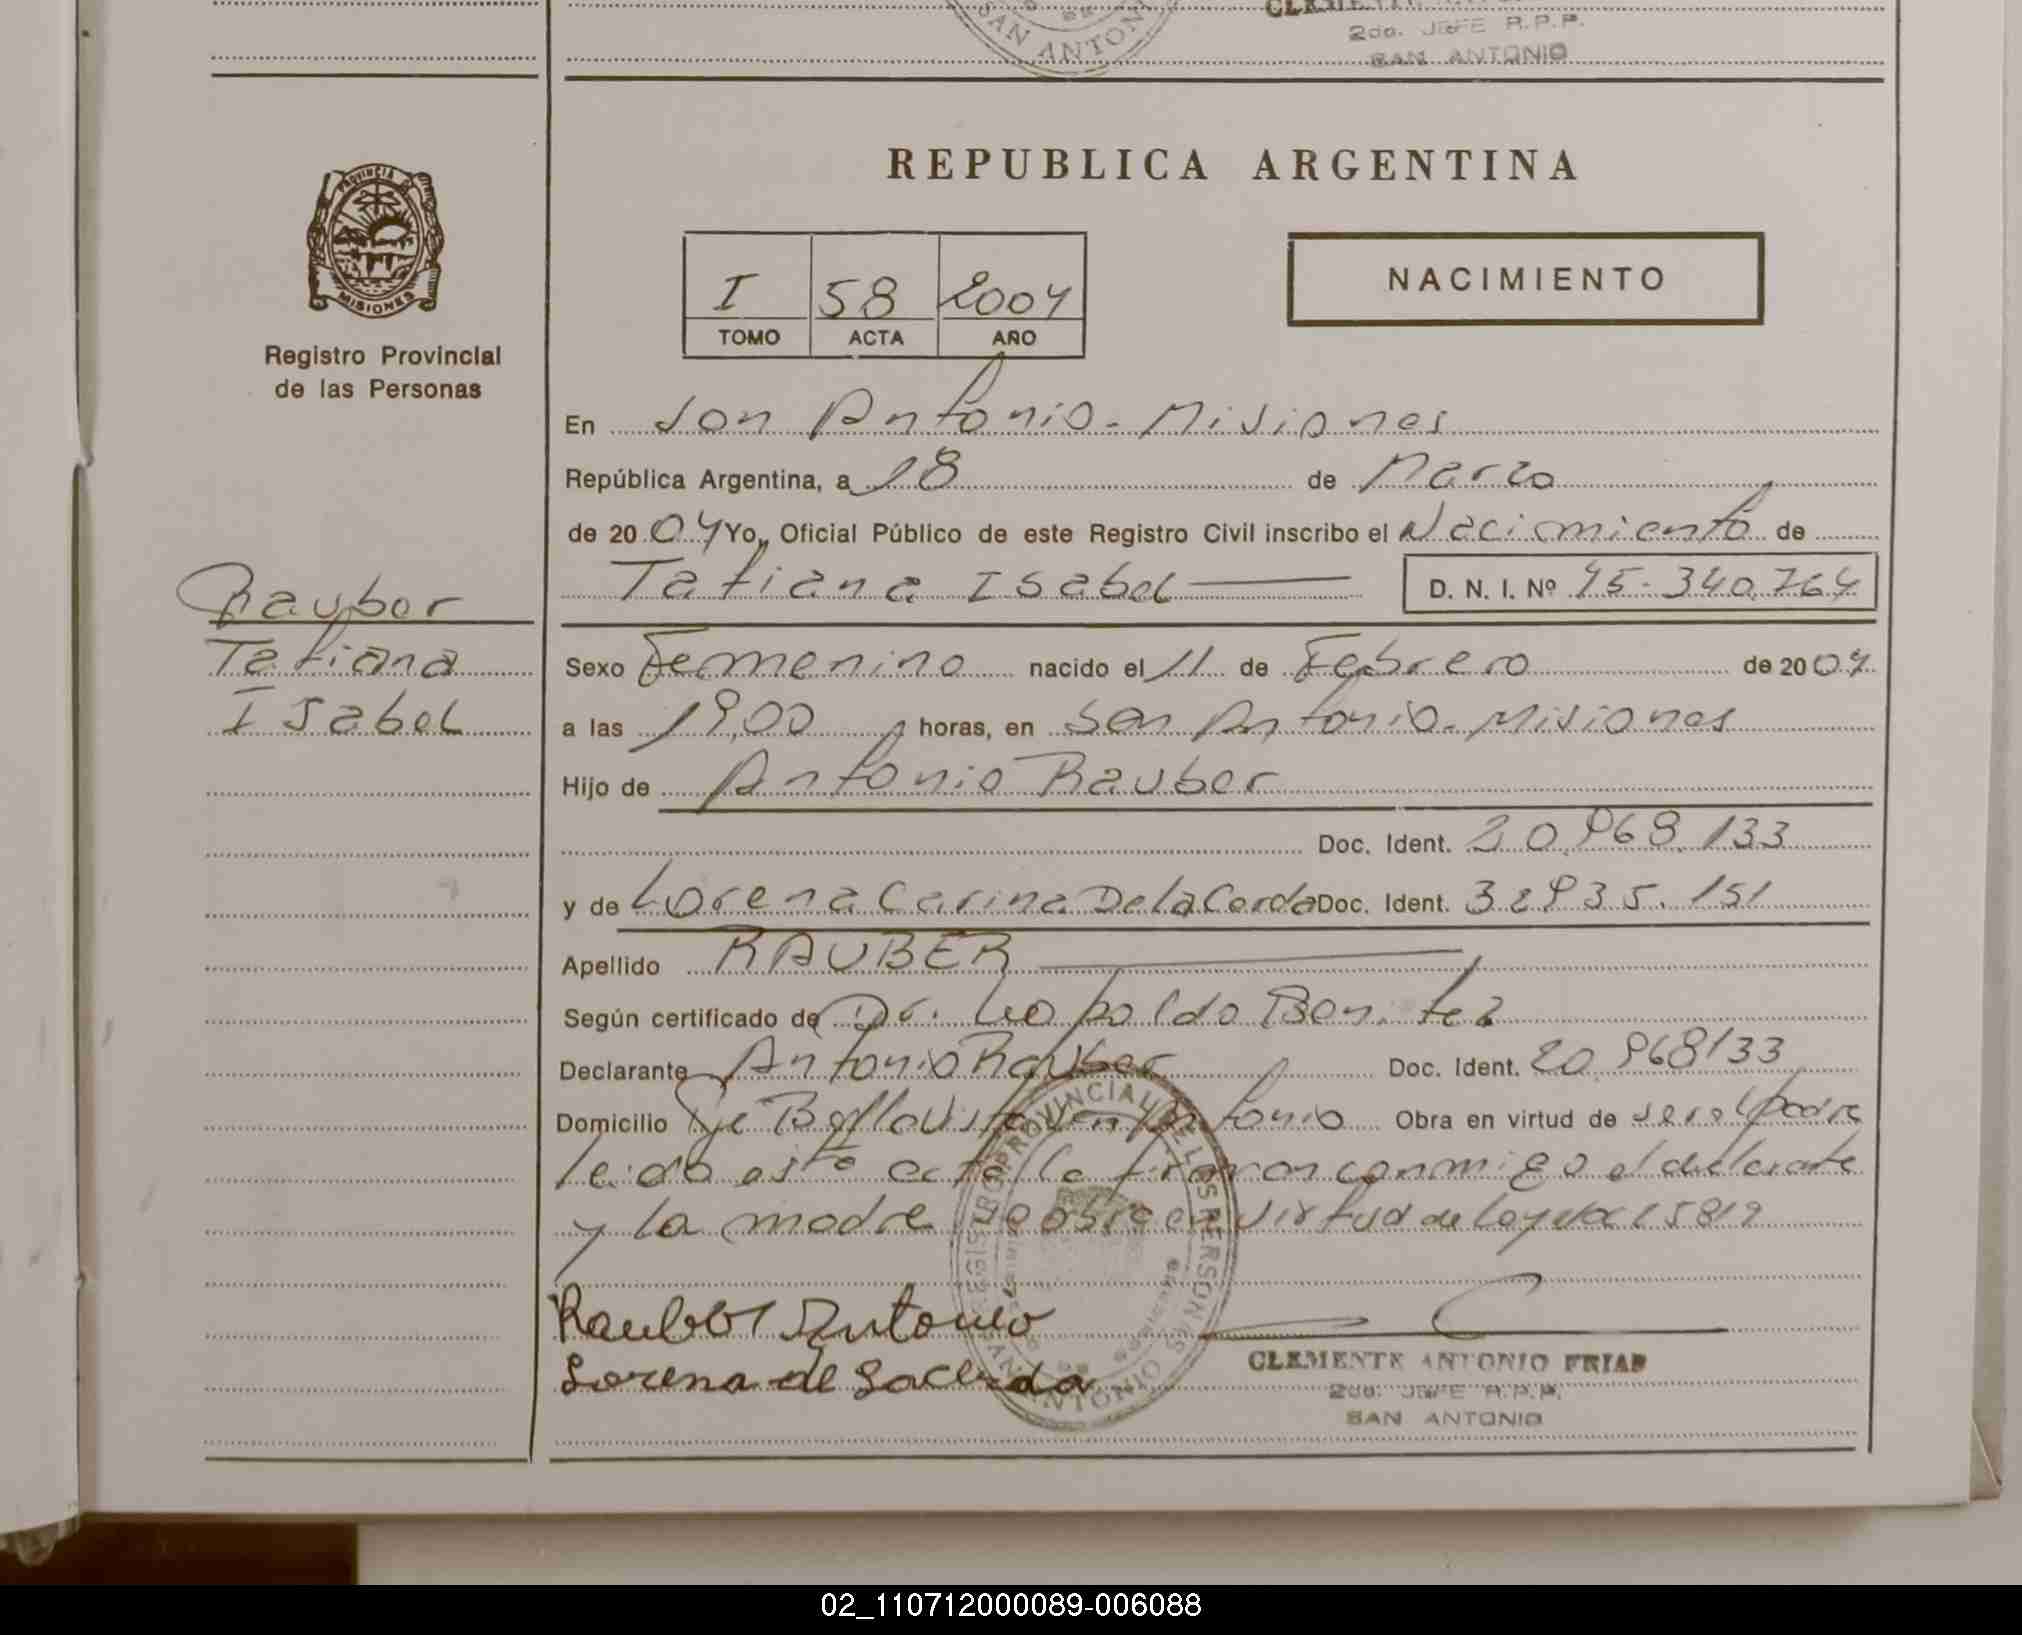 SAN ANTONIO
2do. JEFE R.P.P.
SAN ANTONIO
REPUBLICA ARGENTINA
PROVINCIA DE
MISIONES
Registro Provincial
de las Personas
I 58 2004
TOMO ACTA AÑO
NACIMIENTO
En San Antonio - Misiones
República Argentina, a 18 de Marzo
de 2004 Yo, Oficial Público de este Registro Civil inscribo el Nacimiento de
Tatiana Isabel D. N. I. Nº 45-340.764
Rauber
Tatiana
Isabel
Sexo Femenino nacido el 11 de Febrero de 2004
a las 19,00 horas, en San Antonio - Misiones
Hijo de Antonio Rauber
Doc. Ident. 20.968.133
y de Lorena Carina De la Cerda Doc. Ident. 32935.151
Apellido RAUBER
Según certificado de Dr. Leopoldo Benitez
Declarante Antonio Rauber Doc. Ident. 20.968133
Domicilio Pje Bella Vista San Antonio Obra en virtud de ser el padre
leida esta acta la firman conmigo el declarante
y la madre en virtud de Ley
REGISTRO PROVINCIAL DE LAS PERSONAS
SAN ANTONIO
Rauber Antonio
Lorena de la cerda
CLEMENTE ANTONIO FRIAS
2do. JEFE R.P.P.
SAN ANTONIO
02_110712000089-006088